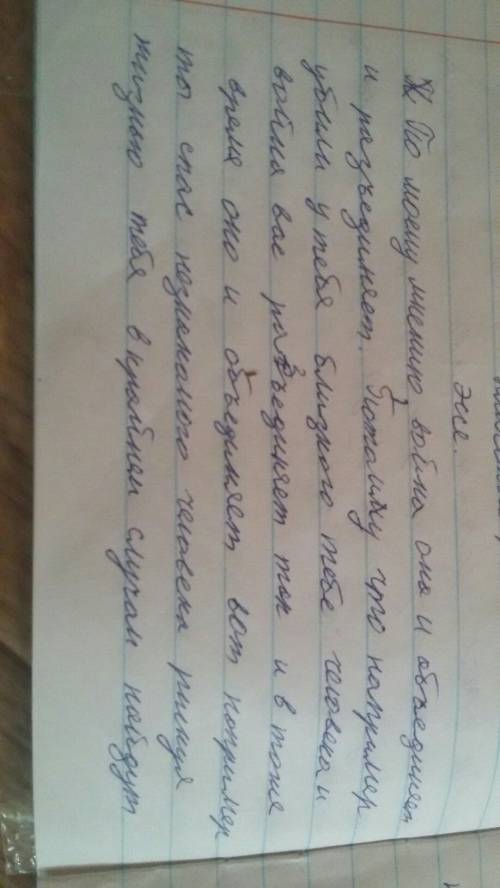 эсе.
Ж По моему мнению война она и объединяет
и разъединяет. Потамку что например
убили у тебя близкого тебе человека и
война вас разъединяет так и в тоже
время оно и объединяет вот например
ты спас незнакомого человека рискуя
жизнью тебя в крайнем случаи найдут